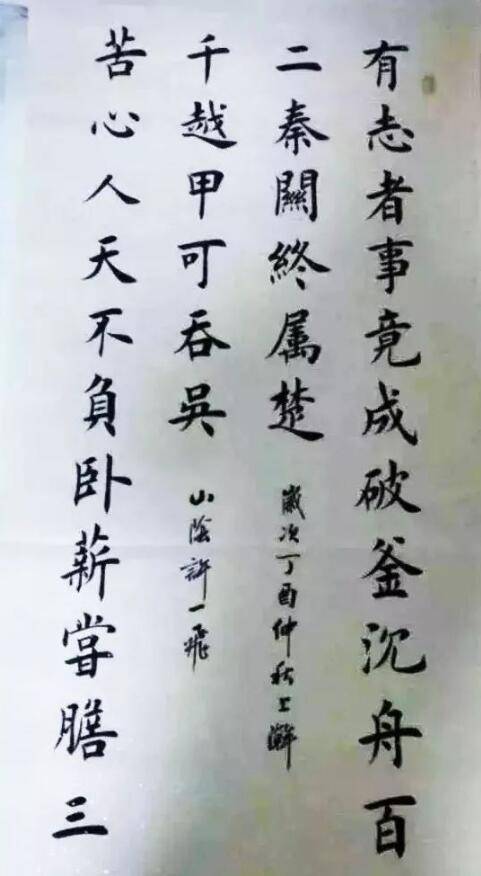 有志者事竟成破釜沉舟百
二秦關終属楚
歲次丁酉仲秋上澣
苦心人天不負卧薪嘗膽三
千越甲可吞吳
山陰許一飛